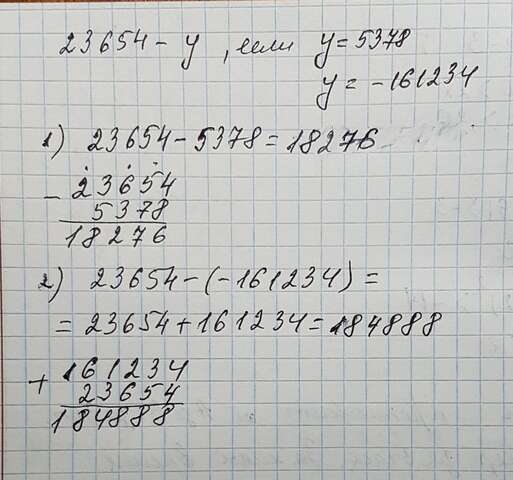 23654 - y, если y = 5378
y = -161234
1) 23654 - 5378 = 18276
- 23654
5378
18276
2) 23654 - (-161234) =
= 23654 + 161234 = 184888
+ 161234
23654
184888